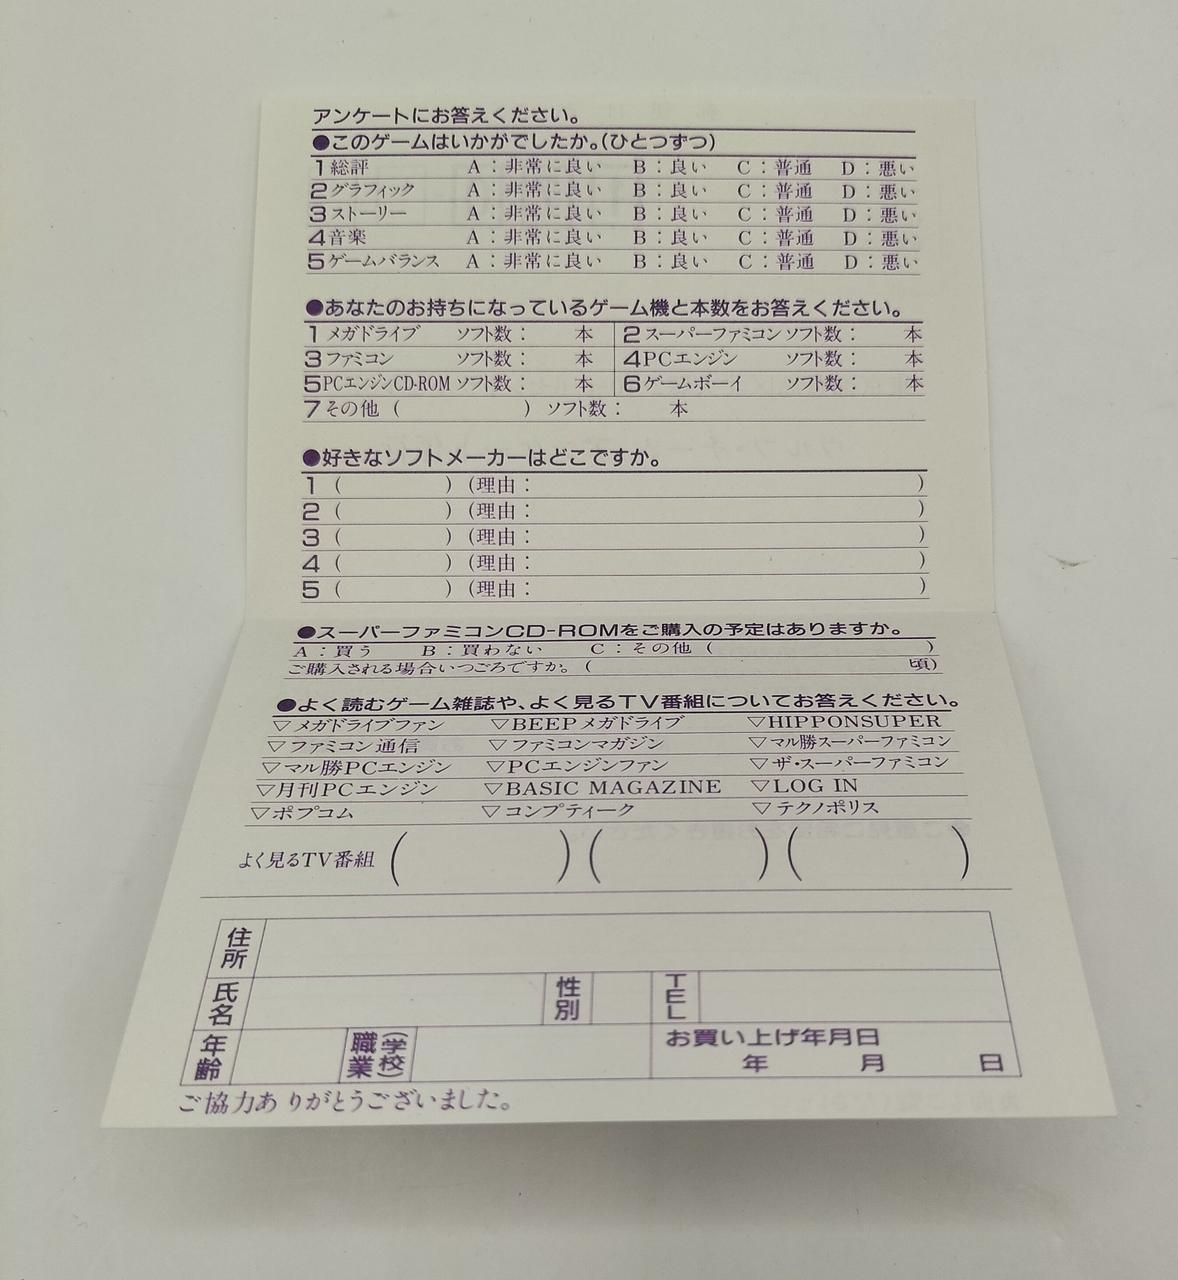 アンケートにお答えください。
●このゲームはいかがでしたか。(ひとつずつ)
1 総評 A：非常に良い B：良い C：普通 D：悪い
2 グラフィック A：非常に良い B：良い C：普通 D：悪い
3 ストーリー A：非常に良い B：良い C：普通 D：悪い
4 音楽 A：非常に良い B：良い C：普通 D：悪い
5 ゲームバランス A：非常に良い B：良い C：普通 D：悪い
●あなたのお持ちになっているゲーム機と本数をお答えください。
1 メガドライブ ソフト数： 本 2 スーパーファミコン ソフト数： 本
3 ファミコン ソフト数： 本 4 PCエンジン ソフト数： 本
5 PCエンジンCD-ROM ソフト数： 本 6 ゲームボーイ ソフト数： 本
7 その他 ( ) ソフト数： 本
●好きなソフトメーカーはどこですか。
1 ( ) (理由： )
2 ( ) (理由： )
3 ( ) (理由： )
4 ( ) (理由： )
5 ( ) (理由： )
●スーパーファミコンCD-ROMをご購入の予定はありますか。
A：買う B：買わない C：その他 ( )
ご購入される場合いつごろですか。( 頃)
●よく読むゲーム雑誌や、よく見るTV番組についてお答えください。
▽メガドライブファン ▽BEEPメガドライブ ▽HIPPONSUPER
▽ファミコン通信 ▽ファミコンマガジン ▽マル勝スーパーファミコン
▽マル勝PCエンジン ▽PCエンジンファン ▽ザ・スーパーファミコン
▽月刊PCエンジン ▽BASIC MAGAZINE ▽LOG IN
▽ポプコム ▽コンプティーク ▽テクノポリス
よく見るTV番組 ( ) ( ) ( )
住所
氏名 性別 TEL
年齢 職業(学校) お買い上げ年月日
年 月 日
ご協力ありがとうございました。